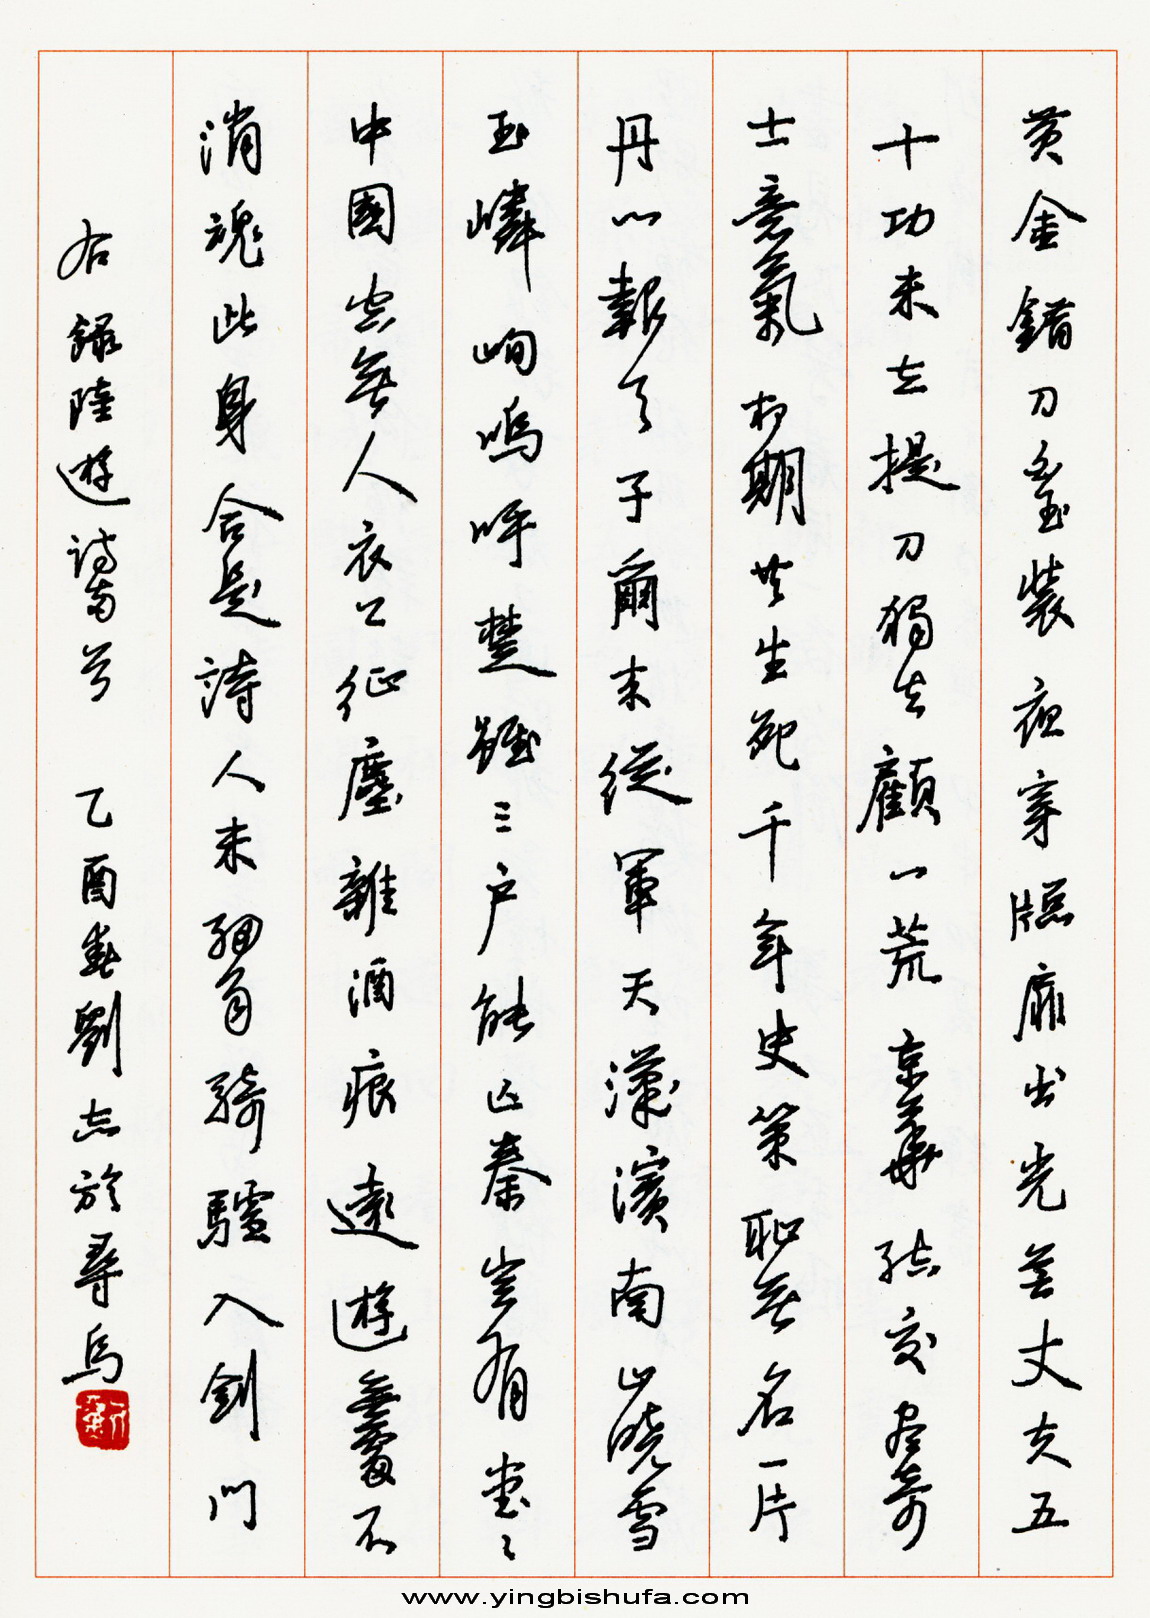 黃金錯刀白玉裝夜穿牕扉出光芒丈夫五
十功未立提刀獨立顧八荒京華結交盡奇
士意氣相期共生死千年史策恥無名一片
丹心報天子爾來從軍天漢濱南山曉雪
玉嶙峋嗚呼楚雖三户能亡秦豈有堂〻
中國空無人衣上征塵雜酒痕遠遊無處不
消魂此身合是詩人未細雨騎驢入劍門
右錄陸遊詩兩首 乙酉春劉志於尋烏
www.yingbishufa.com